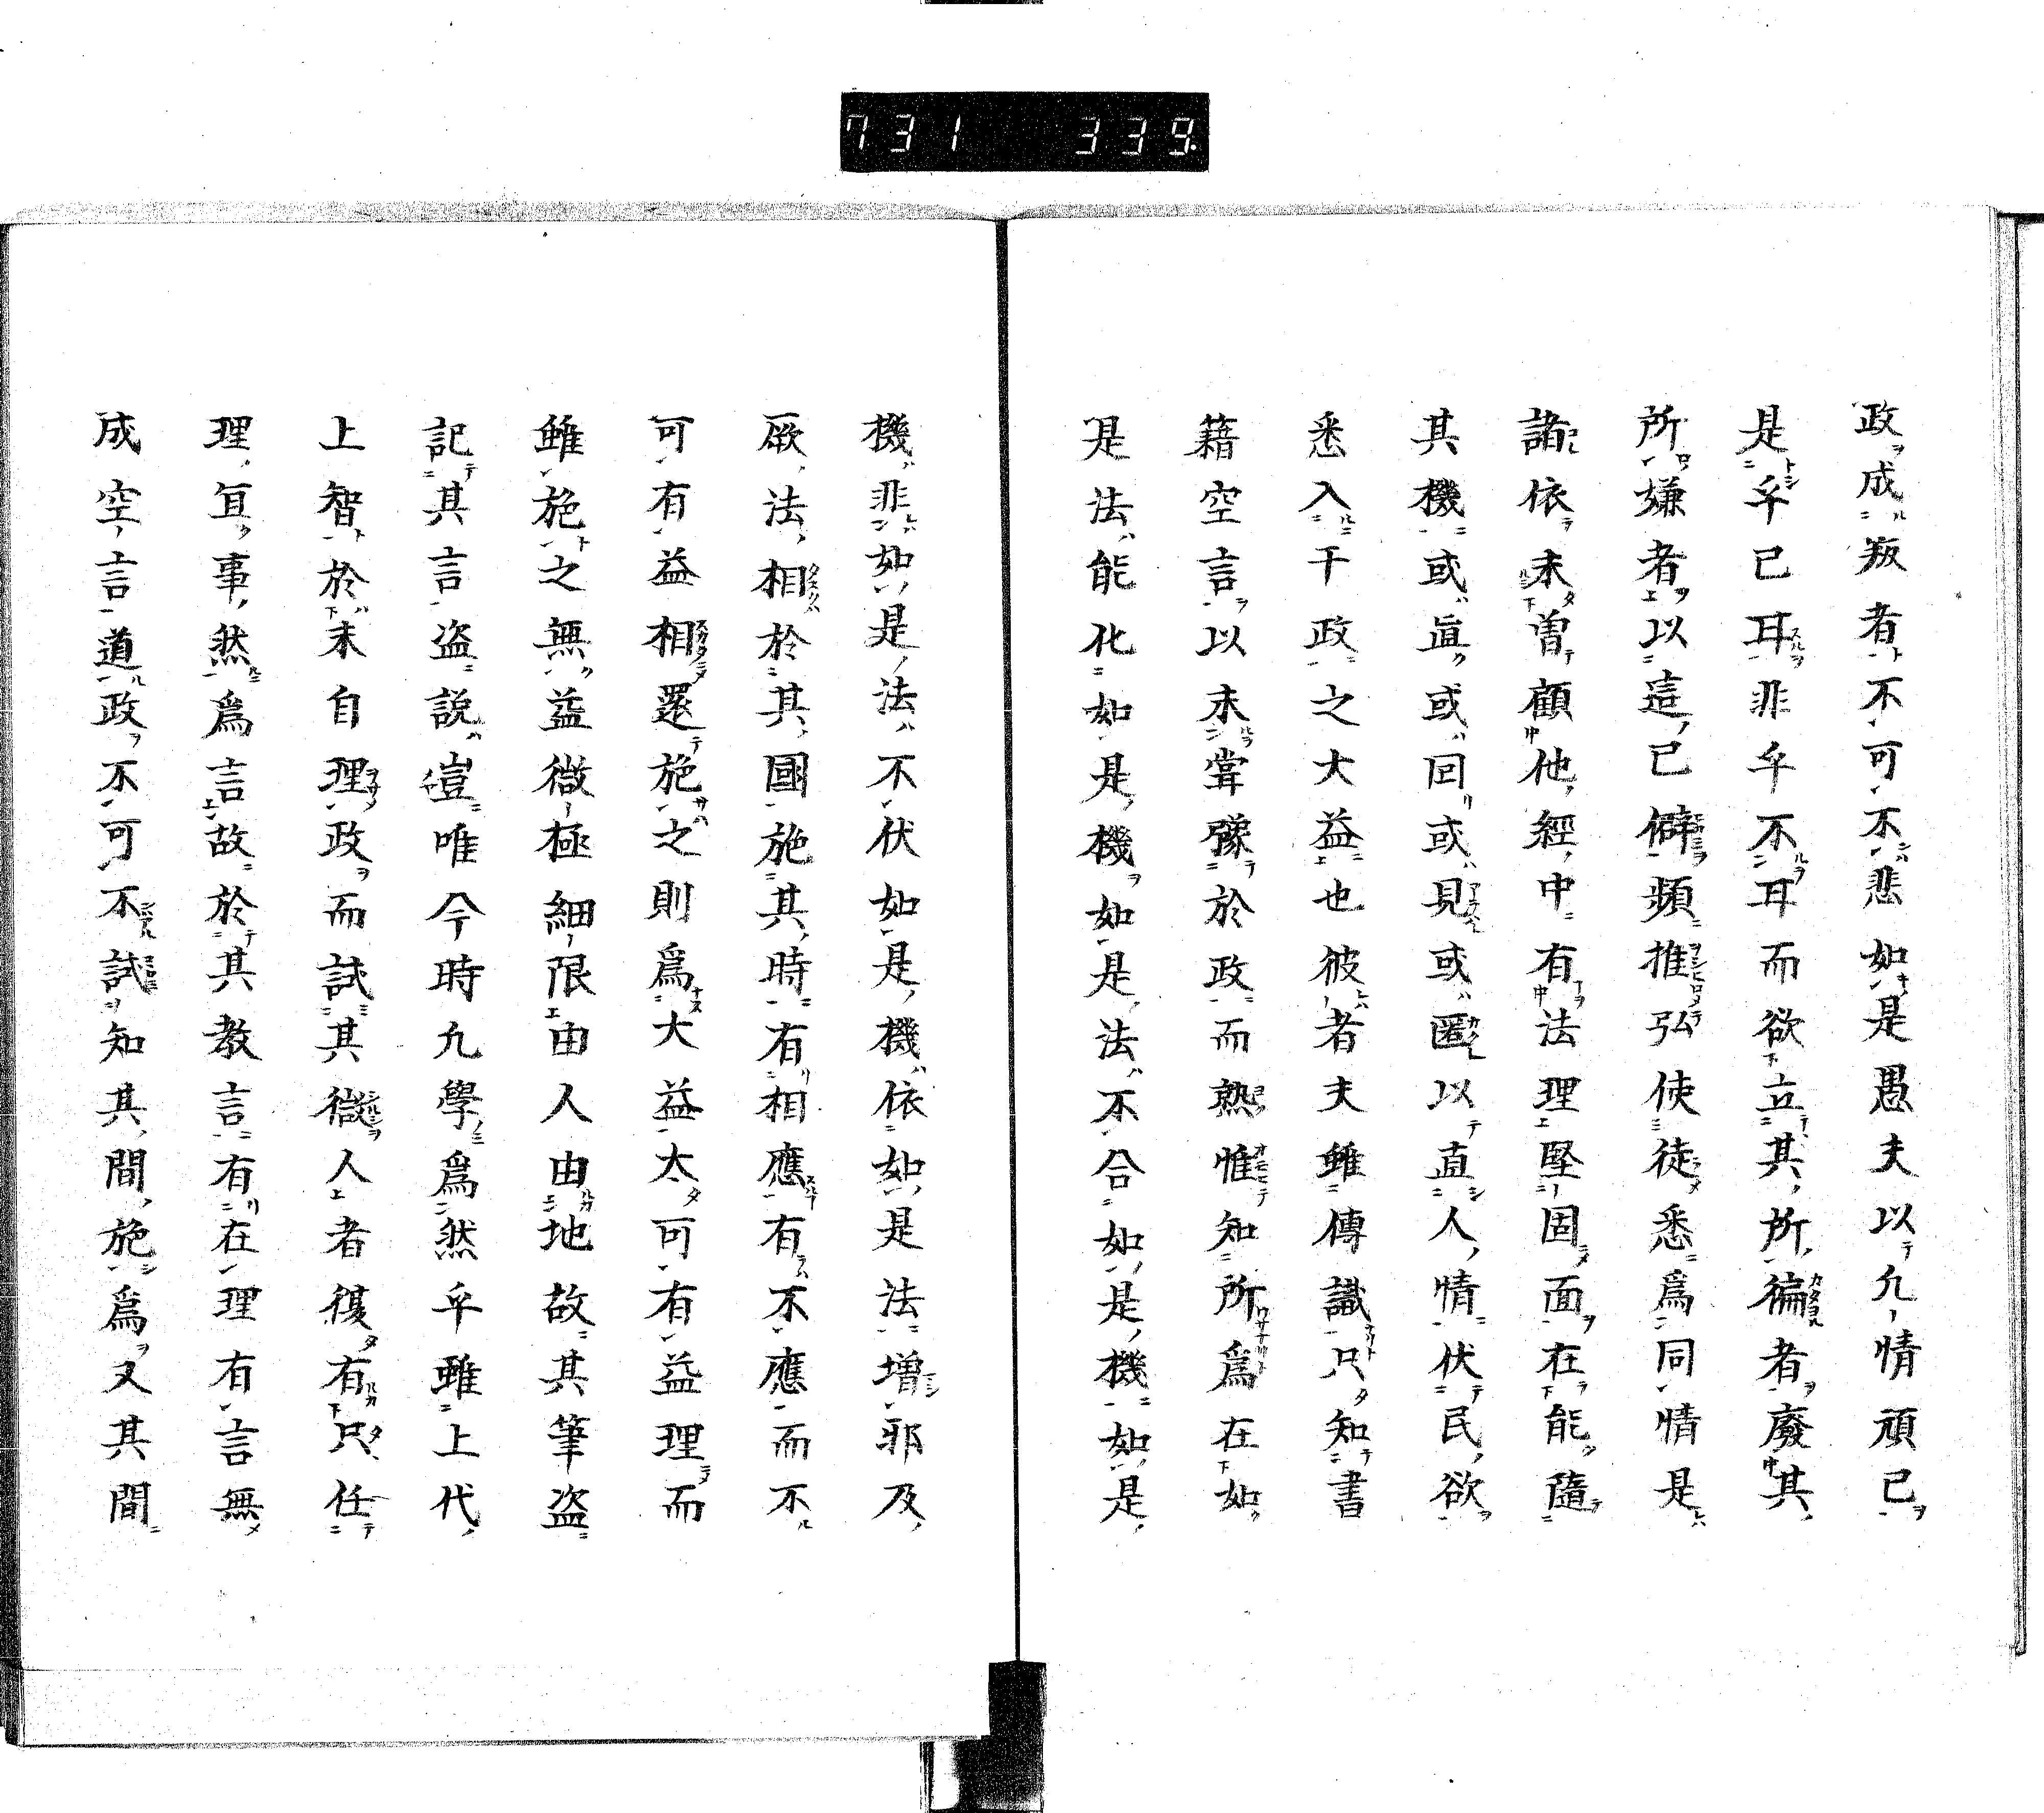 731 339
政成叛者不可不悲如是愚夫以凢情頑已
是乎已耳非乎不耳而欲立其所徧者廢其
所嫌者以這己僻頻推弘使徒悉爲同情是
諸依未曽顧他經中有法理堅固面在能隨
其機或眞或回或見或匿以直人情伏民欲
悉入干政之大益也彼者夫雖傳識只知書
籍空言以未甞豫於政而熟惟知所爲在如
是法能化如是機如是法不合如是機如是
機非如是法不伏如是機依如是法增邪及
厥法相於其國施其時有相應有不應而不
可有益相還施之則爲大益太可有益理而
雖施之無益微極細限由人由地故其筆盗
記其言盗説豈唯今時凢學爲然乎雖上代
上智於末自理政而試其微人者復有只任
理冝事然爲言故於其教言有在理有言無
成空言道政不可不試知其間施爲又其間